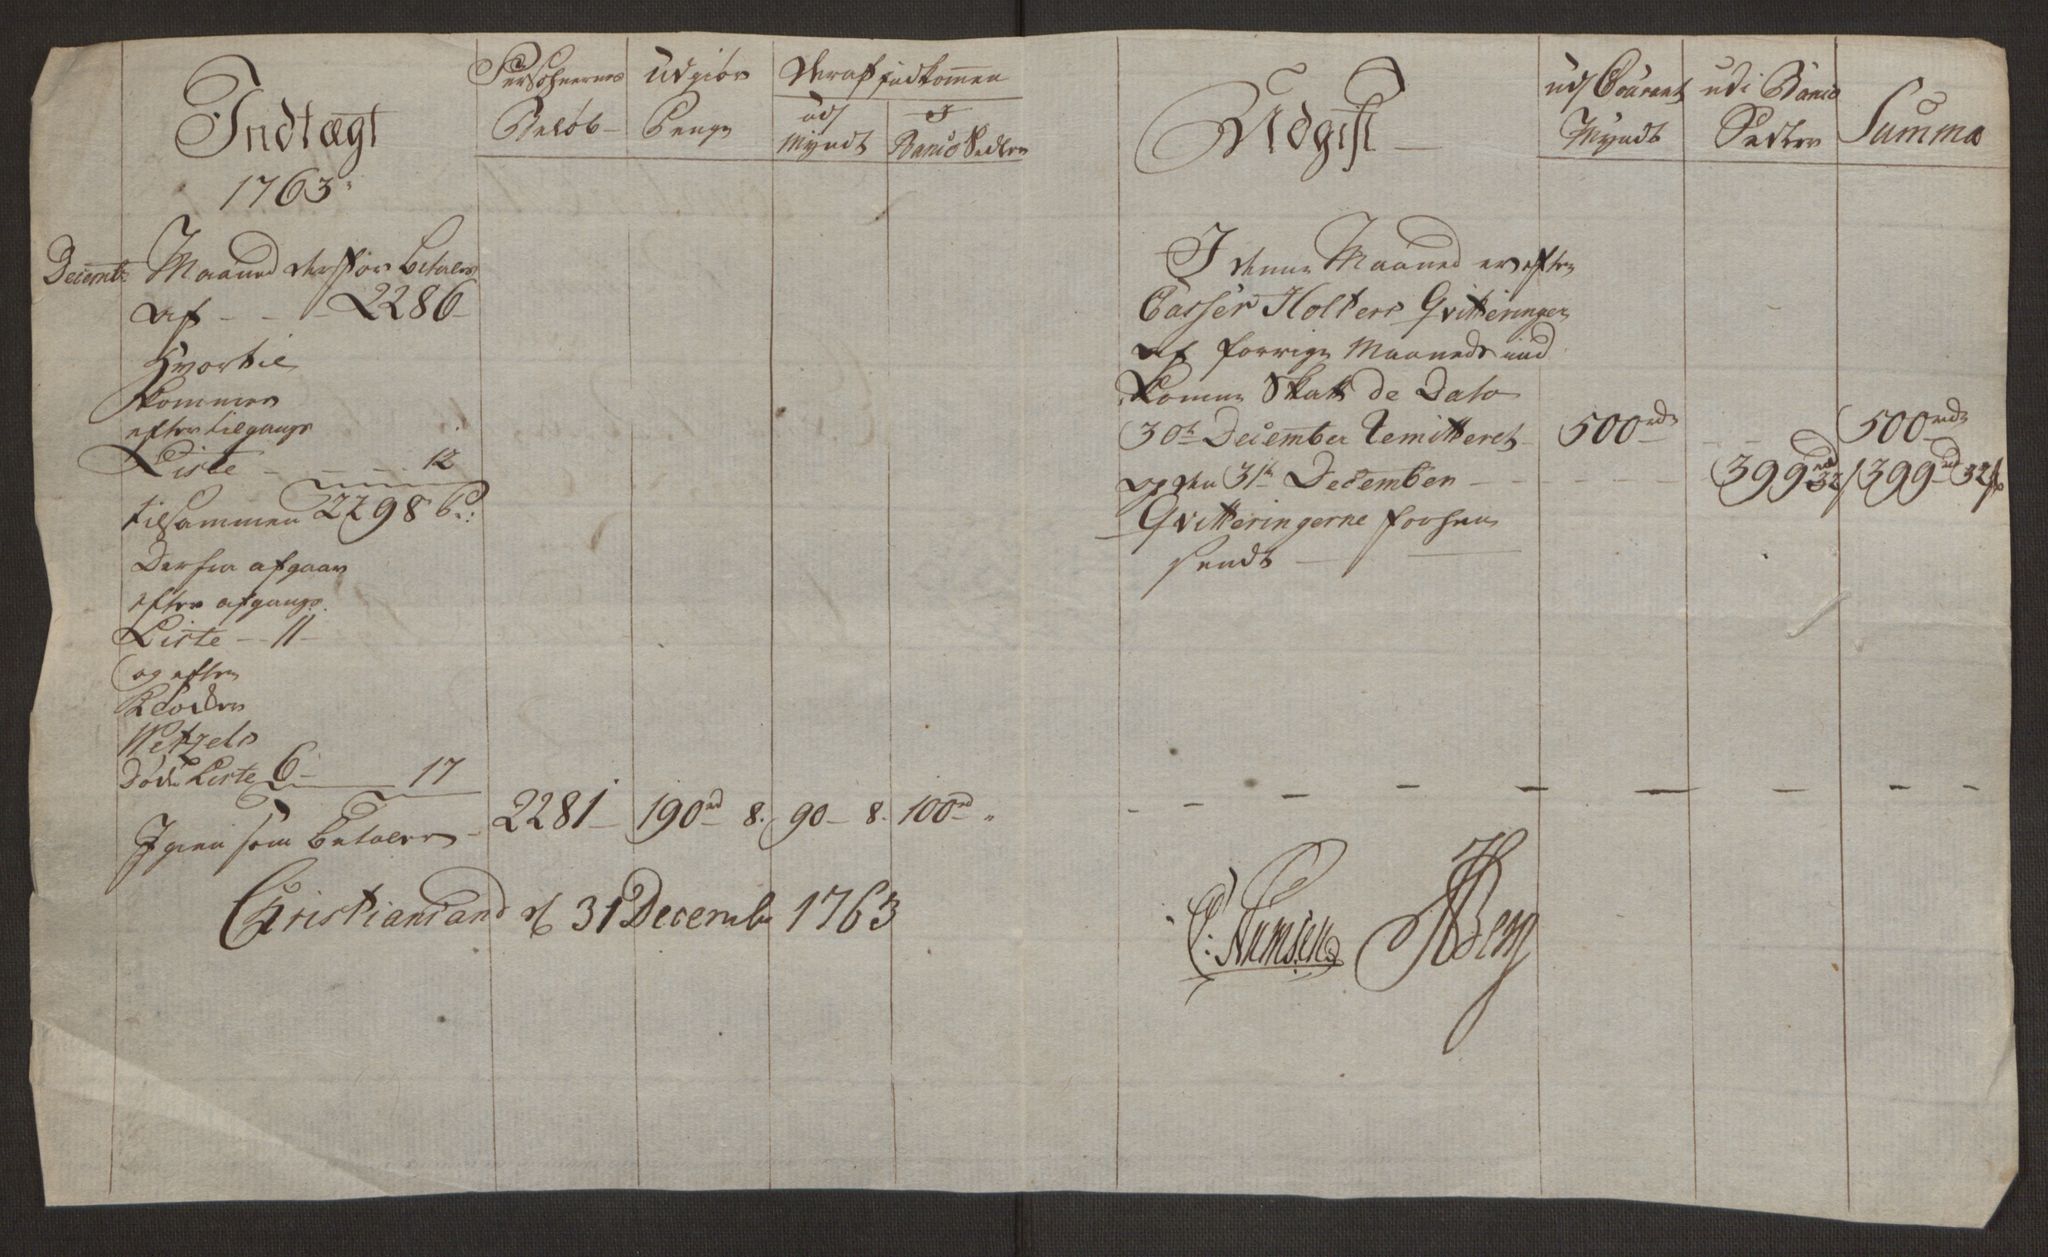 Indtægt
1763
Persohnernes
Beløb
Udgiør
Penge
Deraf indkommen
udj
Myndt
I
Banco Sedler
Decembr Maaned derfor betaler
af - - - 2286
Hvortil
kommer
efter tilgangs
Liste - - - - 12
tilsammen 2298 P:
Derfra afgaar
efter afgangs
Liste - - 11
og efter
Klocker
Wetzels
Døde Liste 6 - 17
Igien som betaler - 2281 190 rd 8. 90 - 8. 100 rd "
Christiansand d 31 Decembr 1763
Udgift
udj Courant
Myndt
udi Banco
Sedler
Summa
I denne Maaned er efter
Casser Holters Qvitteringer
af forrige Maaneds ind
komne Skatt de Dato
30te December Remitteret 500 rd - - 500 rd
og den 31te December - - - - - 399 rd 32 / 399 rd 32 s
Qvitteringerne forhen
sendt
JBerg